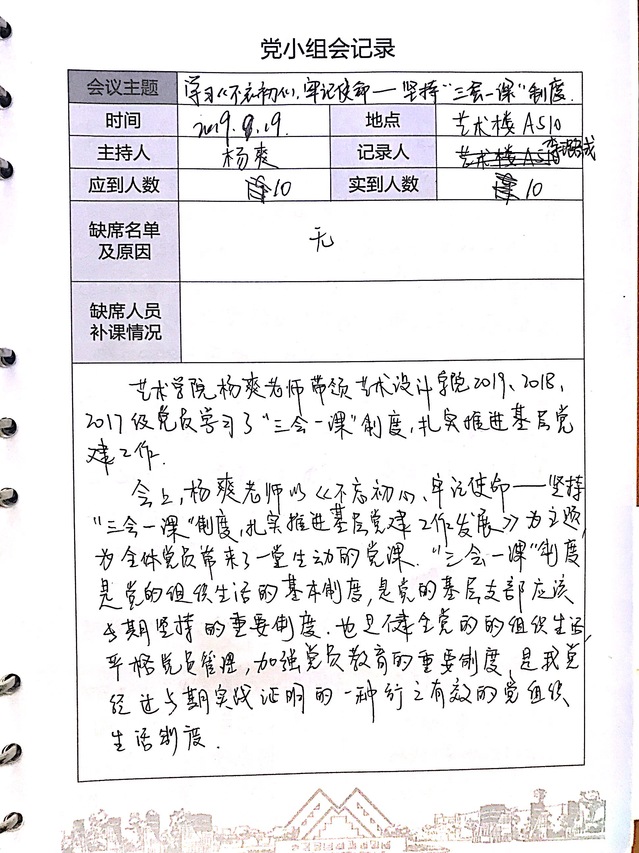 党小组会记录
会议主题 学习《不忘初心、牢记使命——坚持“三会一课”制度.
时间 2019.9.19. 地点 艺术楼A510
主持人 杨爽 记录人 艺术楼A510
应到人数 10 实到人数 10
缺席名单
及原因 无
缺席人员
补课情况
艺术学院杨爽老师带领艺术设计学院2019、2018、
2017级党员学习了“三会一课”制度,扎实推进基层党
建工作.
会上,杨爽老师以《不忘初心、牢记使命——坚持
“三会一课”制度,扎实推进基层党建工作发展》为主题,
为全体党员带来了一堂生动的党课.“三会一课”制度
是党的组织生活的基本制度,是党的基层支部应该
长期坚持的重要制度.也是健全党的的组织生活,
严格党员管理,加强党员教育的重要制度,是我党
经过长期实践证明的一种行之有效的党组织
生活制度.